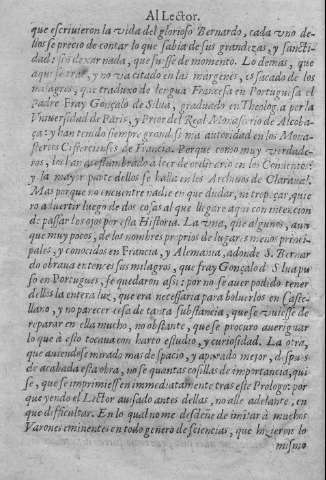 Al Lector.
que escriuieron la vida del glorioso Bernardo, cada vno de-
llos se precio de contar lo que sabia de sus grandezas, y sancti-
dad: sin dexar nada, que fuesse de momento. Lo demas, que
aqui se trae, y no va citado en las margenes, es sacado de los
milagros, que traduxo de lengua Francesa en Portuguesa el
Padre Fray Gonçalo de Silua, graduado en Theolog a por la
Vniuersidad de Paris, y Prior del Real Monasterio de Alcoba-
ça: y han tenido siempre grandiss ma autoridad en los Mona-
sterios Cistercienses de Francia. Porque como muy verdade-
ros, los han acostumbrado à leer de ordinario en los Conuentos:
y la mayor parte dellos se halla en los Archiuos de Claraual.
Mas porque no encuentre nadie en que dudar, ni trop çar, quie
ro aduertir luego de dos cosas al que llegare aqui con intencion
de passar los ojos por esta Historia. La vna, que algunos, aun
que muy pocos, de los nombres proprios de lugares menos princi-
pales, y conocidos en Francia, y Alemania, adonde S. Bernar
do obraua entonces sus milagros, que fray Gonçalo d Silua pu
so en Portugues, se quedaron assi: por no se auer podido tener
dellos la entera luz, que era necessaria para boluerlos en Caste-
llano, y no parecer cosa de tanta substancia, que se vuiesse de
reparar en ella mucho, no obstante, que se procuro aueriguar
lo que à esto tocaua con harto estudio, y curiosidad. La otra,
que auiendose mirado mas de spacio, y apurado mejor, despues
de acabada esta obra, no se quantas cosillas de importancia, qui
se, que se imprimiessen immediatamente tras este Prologo: por
que yendo el Lector auisado antes dellas, no alle adelante, en
que difficultar. En lo qual no me desdeñe de imitar à muchos
Varones eminentes en todo genero de sciencias, que hizieron lo
mismo